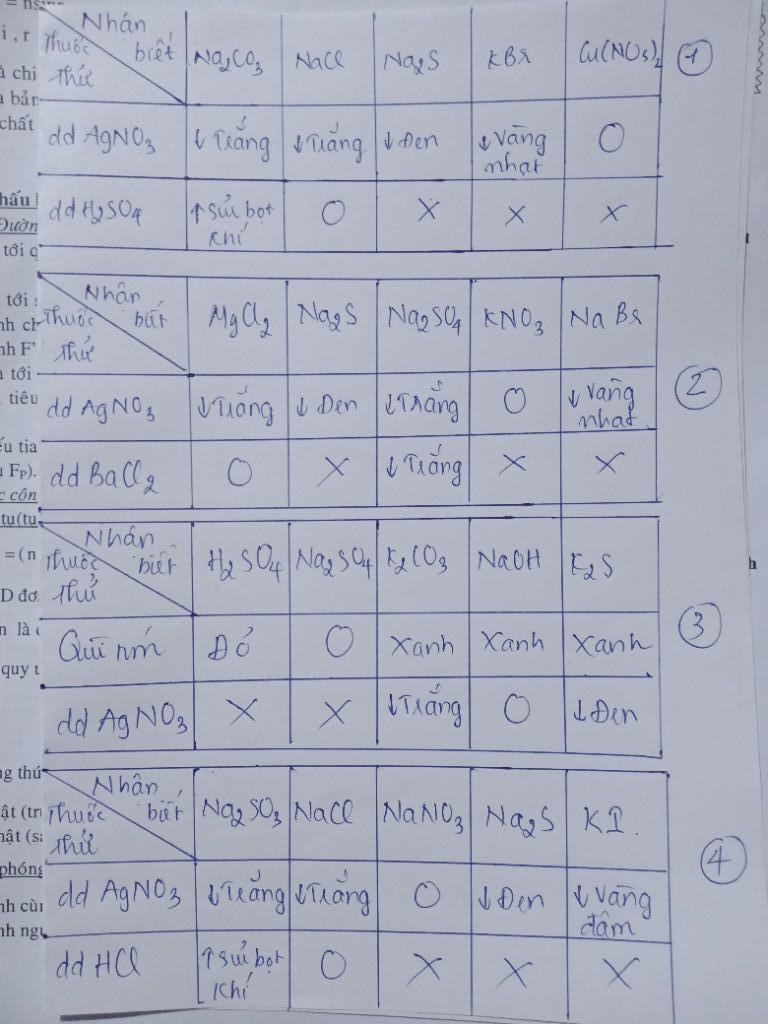 Nhận biết
Thuốc thử
Na₂CO₃ NaCl Na₂S KBr Cu(NO₃)₂ ①
dd AgNO₃ ↓Trắng ↓Trắng ↓Đen ↓Vàng nhạt O
dd H₂SO₄ ↑Sủi bọt khí O X X X
Nhận biết
Thuốc thử
MgCl₂ Na₂S Na₂SO₄ KNO₃ NaBr ②
dd AgNO₃ ↓Trắng ↓Đen ↓Trắng O ↓Vàng nhạt
dd BaCl₂ O X ↓Trắng X X
Nhận biết
Thuốc thử
H₂SO₄ Na₂SO₄ K₂CO₃ NaOH K₂S ③
Quì tím Đỏ O Xanh Xanh Xanh
dd AgNO₃ X X ↓Trắng O ↓Đen
Nhận biết
Thuốc thử
Na₂SO₃ NaCl NaNO₃ Na₂S KI. ④
dd AgNO₃ ↓Trắng ↓Trắng O ↓Đen ↓Vàng đậm
dd HCl ↑Sủi bọt khí O X X X